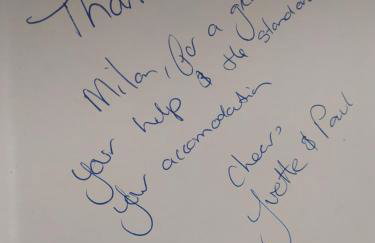 Than
Milan, for a g
Your help & the standar
Your accomodation
Cheers
Yvette & Paul